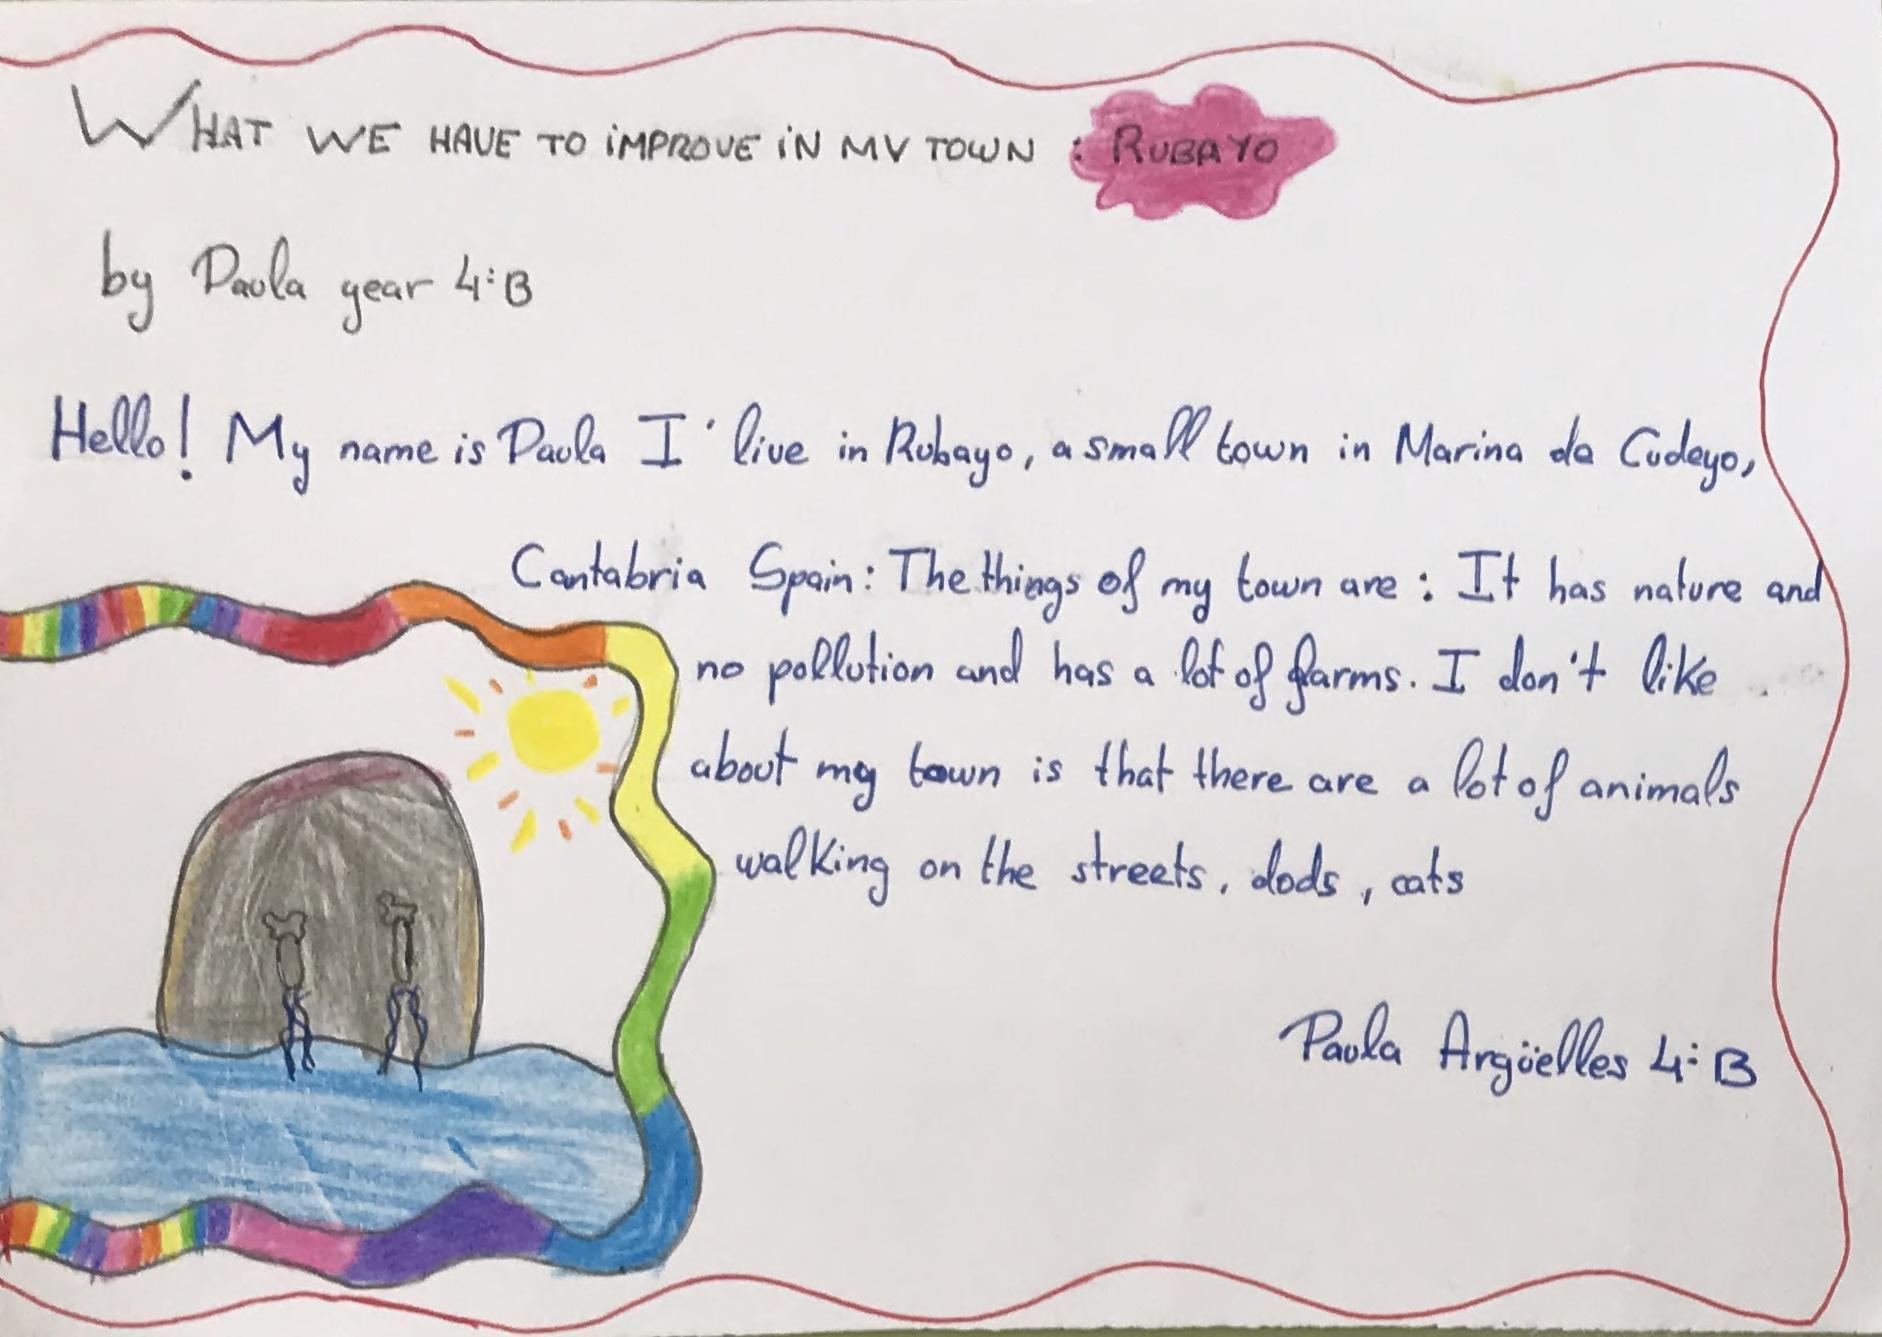 WHAT WE HAVE TO iMPROVE iN MY TOWN : RUBAYO
by Paula year 4:B
Hello! My name is Paula I' live in Rubayo, a small town in Marina de Cudeyo,
Cantabria Spain: The things of my town are : It has nature and
no pollution and has a lot of farms. I don't like
about my town is that there are a lot of animals
walking on the streets, dods, cats
Paula Argüelles 4:B